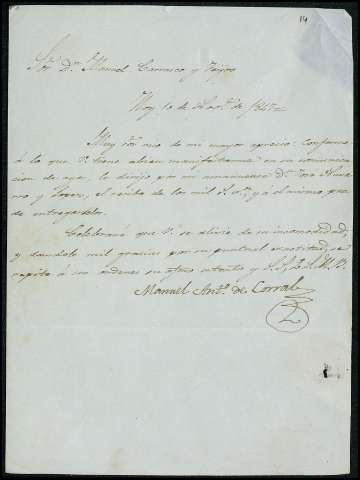 14
Sr. Dn. Manuel Carrasco y
Hoy 10 de de 1847
Muy Sor. mio de mi mayor aprecio: Conforme
á lo que V. tiene á bien manifestarme en su comunica-
cion de ayer, le dirijo por mi amanuense Dn. José
y Lopez, el recibo de los mil r. v., y al mismo pue-
de entregarselos.
Celebraré que V. se alivie de su incomodidad,
y dandole mil gracias por su puntual exactitud, se
repite á sus ordenes su afmo. atento y S. S. Q. S. M. B.
Manuel Anto. de Corral